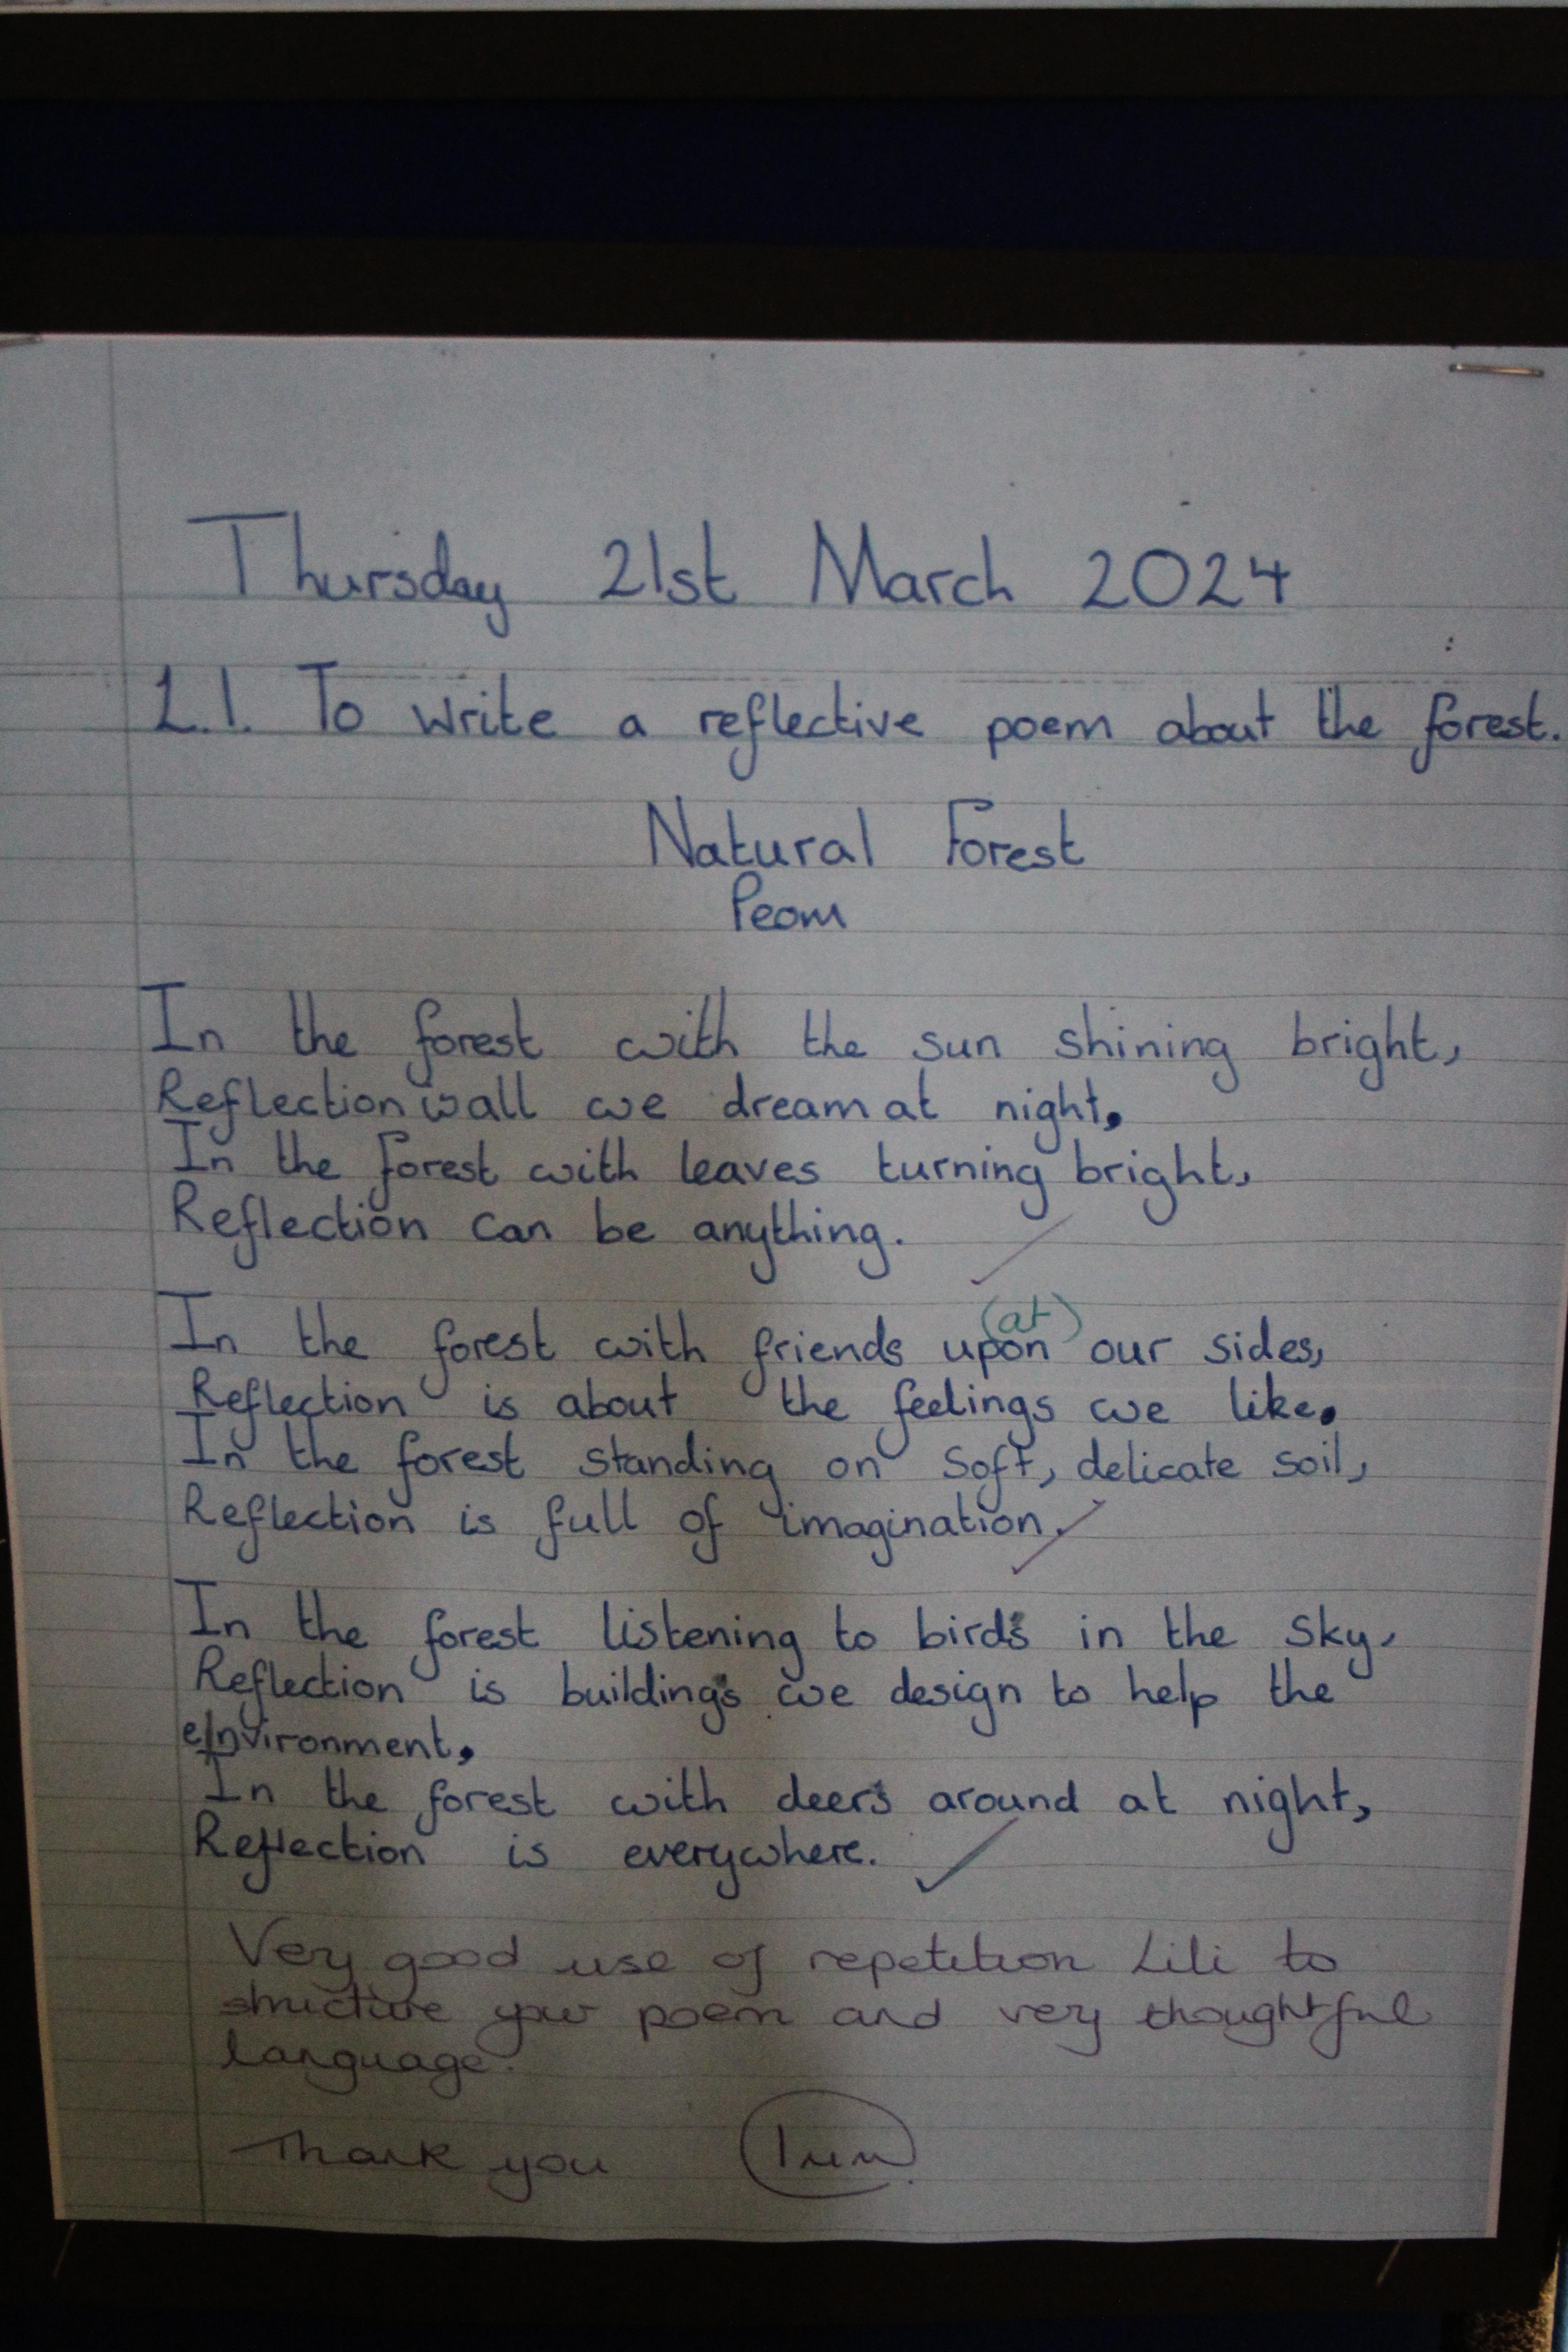 Thursday 21st March 2024
L.I. To write a reflective poem about the forest.
Natural Forest
Peom
In the forest with the sun shining bright,
Reflection is all we dream at night.
In the forest with leaves turning bright,
Reflection can be anything.
(at)
In the forest with friends upon our sides,
Reflection is about the feelings we like.
In the forest standing on soft, delicate soil,
Reflection is full of imagination.
In the forest listening to birds in the sky,
Reflection is buildings we design to help the
environment.
In the forest with deers around at night,
Reflection is everywhere.
Very good use of repetition Lili to
structure your poem and very thoughtful
language.
Thank you